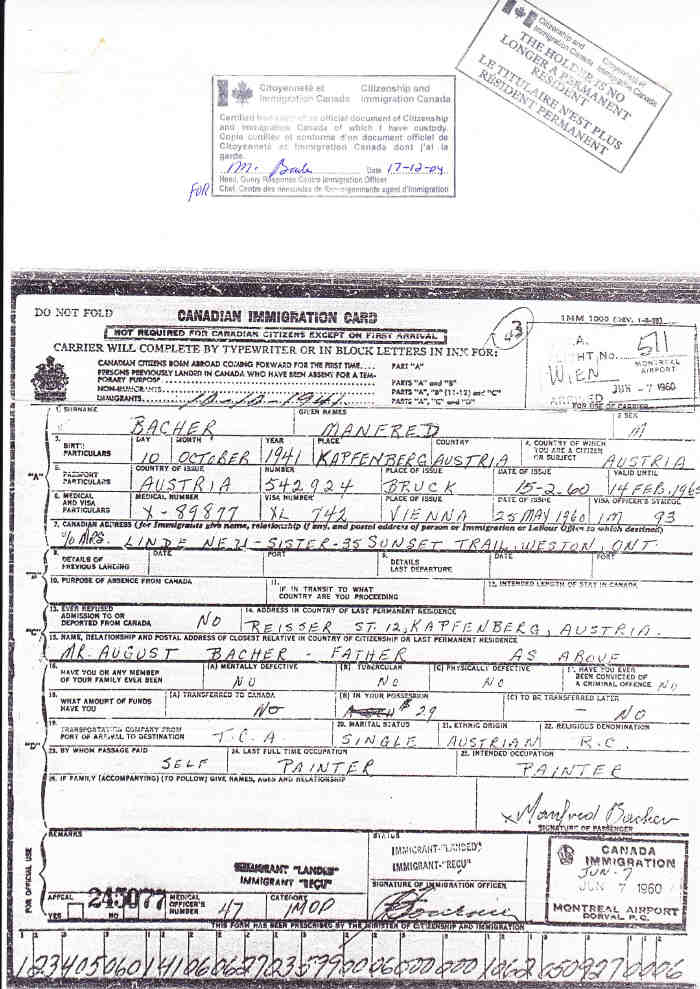 Citizenship and
Immigration Canada
Citoyenneté et
Immigration Canada
THE HOLDER IS NO
LONGER A PERMANENT
RESIDENT
LE TITULAIRE N'EST PLUS
RÉSIDENT PERMANENT
Citoyenneté et Citizenship and
Immigration Canada Immigration Canada
Certified true copy of an official document of Citizenship
and Immigration Canada of which I have custody.
Copie certifiée et conforme d'un document officiel de
Citoyenneté et Immigration Canada dont j'ai la
garde.
Date 17-12-04
Head, Query Response Centre Immigration Officer
FOR Chef, Centre des demandes de renseignements agent d'immigration
DO NOT FOLD CANADIAN IMMIGRATION CARD IMM 1000
NOT REQUIRED FOR CANADIAN CITIZENS EXCEPT ON FIRST ARRIVAL
CARRIER WILL COMPLETE BY TYPEWRITER OR IN BLOCK LETTERS IN INK FOR:
CANADIAN CITIZENS BORN ABROAD COMING FORWARD FOR THE FIRST TIME PART "A"
PERSONS PREVIOUSLY LANDED IN CANADA WHO HAVE BEEN ABSENT FOR A TEMPORARY PURPOSE PARTS "A" and "B"
NON-IMMIGRANTS PARTS "A", "B" (11-12) and "C"
IMMIGRANTS PARTS "A", "C" and "D"
10-10-1941
511
WIEN
MONTREAL
AIRPORT
JUN -7 1960
FOR USE OF CARRIER
1. SURNAME GIVEN NAMES 2. SEX
BACHER MANFRED M
3. BIRTH PARTICULARS DAY MONTH YEAR PLACE COUNTRY 4. COUNTRY OF WHICH YOU ARE A CITIZEN OR SUBJECT
10 OCTOBER 1941 KAPFENBERG AUSTRIA AUSTRIA
"A"
5. PASSPORT PARTICULARS COUNTRY OF ISSUE NUMBER PLACE OF ISSUE DATE OF ISSUE VALID UNTIL
AUSTRIA 542924 BRUCK 15-2.60 14 FEB. 1965
6. MEDICAL AND VISA PARTICULARS MEDICAL NUMBER VISA NUMBER PLACE OF ISSUE DATE OF ISSUE VISA OFFICER'S SYMBOL
X-89877 XL 742 VIENNA 25 MAY 1960 IM 93
7. CANADIAN ADDRESS (for Immigrants give name, relationship if any, and postal address of person or Immigration or Labour Office to which destined)
c/o MRS. LINDE NEU - SISTER - 35 SUNSET TRAIL, WESTON, ONT.
8. DETAILS OF PREVIOUS LANDING DATE PORT 9. DETAILS LAST DEPARTURE DATE PORT
10. PURPOSE OF ABSENCE FROM CANADA 11. IF IN TRANSIT TO WHAT COUNTRY ARE YOU PROCEEDING 12. INTENDED LENGTH OF STAY IN CANADA
13. EVER REFUSED ADMISSION TO OR DEPORTED FROM CANADA NO 14. ADDRESS IN COUNTRY OF LAST PERMANENT RESIDENCE
REISSER ST. 12, KAPFENBERG, AUSTRIA.
"C"
15. NAME, RELATIONSHIP AND POSTAL ADDRESS OF CLOSEST RELATIVE IN COUNTRY OF CITIZENSHIP OR LAST PERMANENT RESIDENCE
MR. AUGUST BACHER - FATHER AS ABOVE
16. HAVE YOU OR ANY MEMBER OF YOUR FAMILY EVER BEEN (A) MENTALLY DEFECTIVE NO (B) TUBERCULAR NO (C) PHYSICALLY DEFECTIVE NO 17. HAVE YOU EVER BEEN CONVICTED OF A CRIMINAL OFFENCE NO
18. WHAT AMOUNT OF FUNDS HAVE YOU (A) TRANSFERRED TO CANADA NO (B) IN YOUR POSSESSION $29 (C) TO BE TRANSFERRED LATER - NO
19. TRANSPORTATION COMPANY FROM PORT OF ARRIVAL TO DESTINATION T.C.A 20. MARITAL STATUS SINGLE 21. ETHNIC ORIGIN AUSTRIAN 22. RELIGIOUS DENOMINATION R.C.
"D"
23. BY WHOM PASSAGE PAID SELF 24. LAST FULL TIME OCCUPATION PAINTER 25. INTENDED OCCUPATION PAINTER
26. IF FAMILY (ACCOMPANYING) (TO FOLLOW) GIVE NAMES, AGES AND RELATIONSHIP
x Manfred Bacher
SIGNATURE OF PASSENGER
REMARKS STATUS
IMMIGRANT-"LANDED"
IMMIGRANT-"REÇU"
IMMIGRANT "LANDED"
IMMIGRANT "REÇU"
CANADA
IMMIGRATION
JUN-7
JUN 7 1960
MONTREAL AIRPORT
DORVAL P.Q.
FOR OFFICIAL USE
APPEAL YES NO 245077 MEDICAL OFFICER'S NUMBER 47 CATEGORY IMOP SIGNATURE OF IMMIGRATION OFFICER
THIS FORM HAS BEEN PRESCRIBED BY THE MINISTER OF CITIZENSHIP AND IMMIGRATION